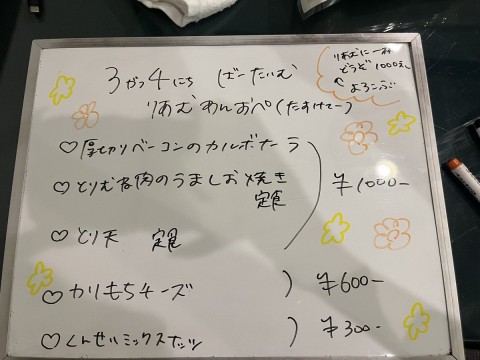 3がつ4にち ばーたいむ
りあむ わんおぺ(たすけてー)
りあむに一杯
どうぞ1000えん
よろこぶ
♡厚切りベーコンのカルボナーラ
♡とりむね肉のうましお焼き
定食
¥1000-
♡とり天 定食
♡カリもちチーズ ) ¥600-
♡くんせいミックスナッツ ) ¥300-